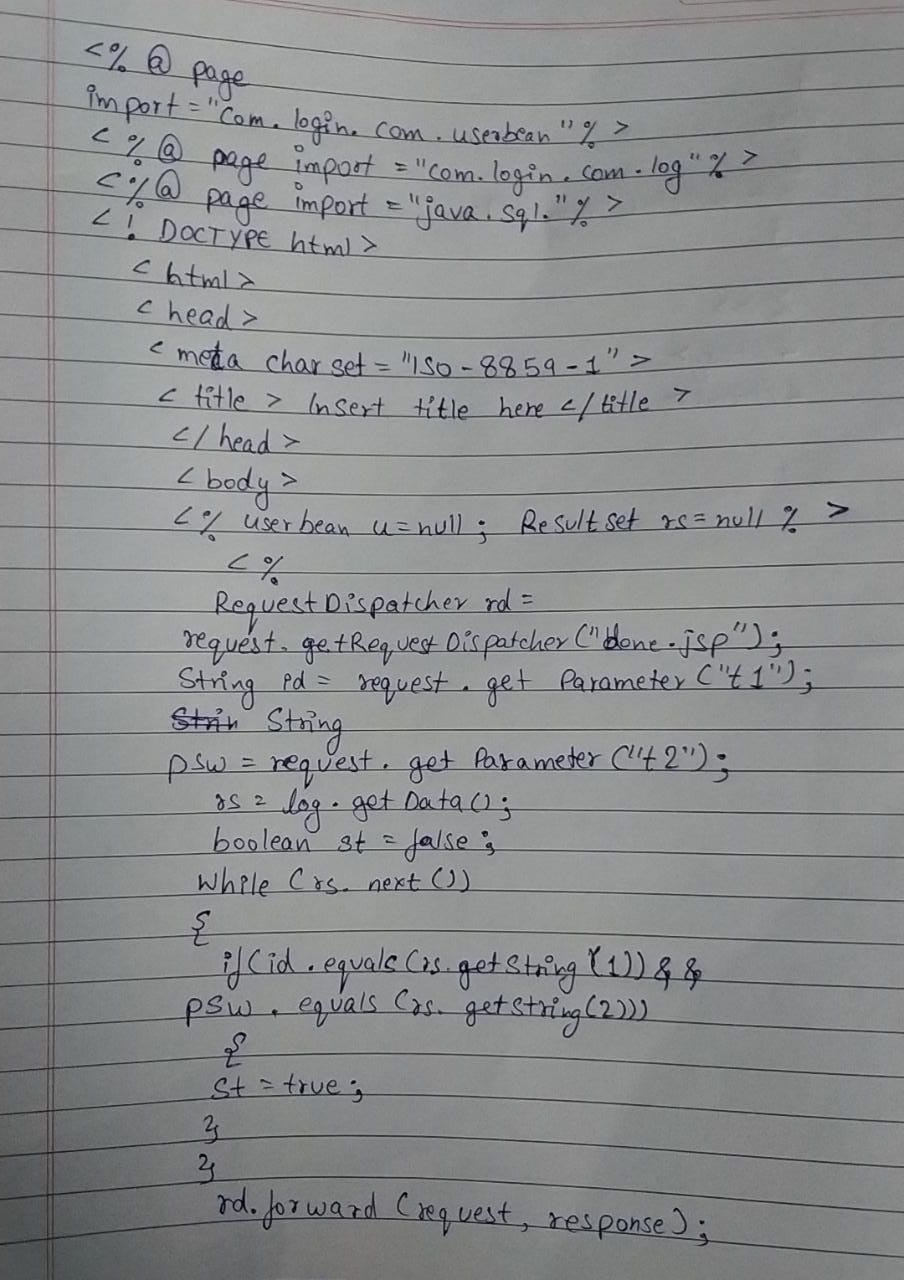 <% @ page
import = "Com. login. com . userbean" % >
< % @ page import = "com. login . com . log" % >
< % @ page import = "java . sql." % >
< ! DOCTYPE html >
< html >
< head >
< meta char set = "ISO - 8859 - 1" >
< title > Insert title here < / title >
< / head >
< body >
< % user bean u = null ; Result set rs = null % >
< %
Request Dispatcher rd =
request. getRequest Dispatcher ("done . jsp");
String id = request . get Parameter ("t 1");
String
psw = request . get Parameter ("t 2");
rs = log . get Data ();
boolean st = false ;
While (rs. next ())
{
if (id . equals (rs. get String (1)) & &
psw . equals (rs. getString (2)))
{
St = true ;
}
}
rd. forward (request, response);